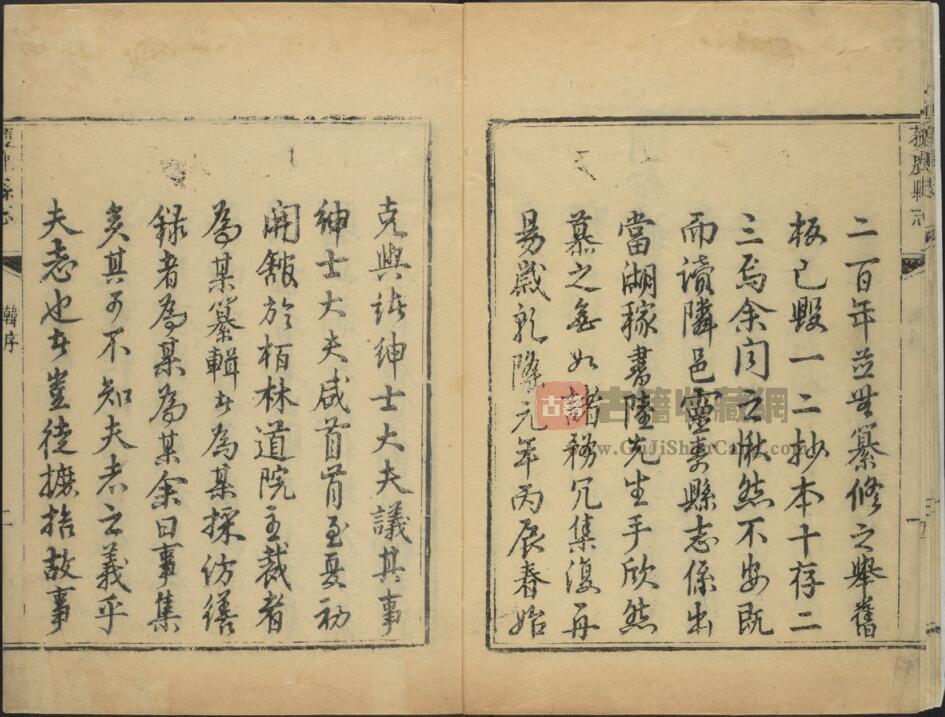 二百年並無纂修之舉舊
板已毀一二抄本十存二
三焉余聞之愀然不安既
而讀隣邑靈壽縣志係出
當湖稼書陸先生手欣然
慕之無如諸務冗集復再
易歲乾隆元年丙辰春始
克與諸紳士大夫議其事
紳士大夫咸首肯至夏初
開舘於栢林道院主裁者
為某纂輯者為某採仿繕
録者為某為某余曰事集
矣其可不知夫志之義乎
夫志也者豈徒摭拾故事
韓序
二
古籍收藏網
www.GuJiShouCang.com